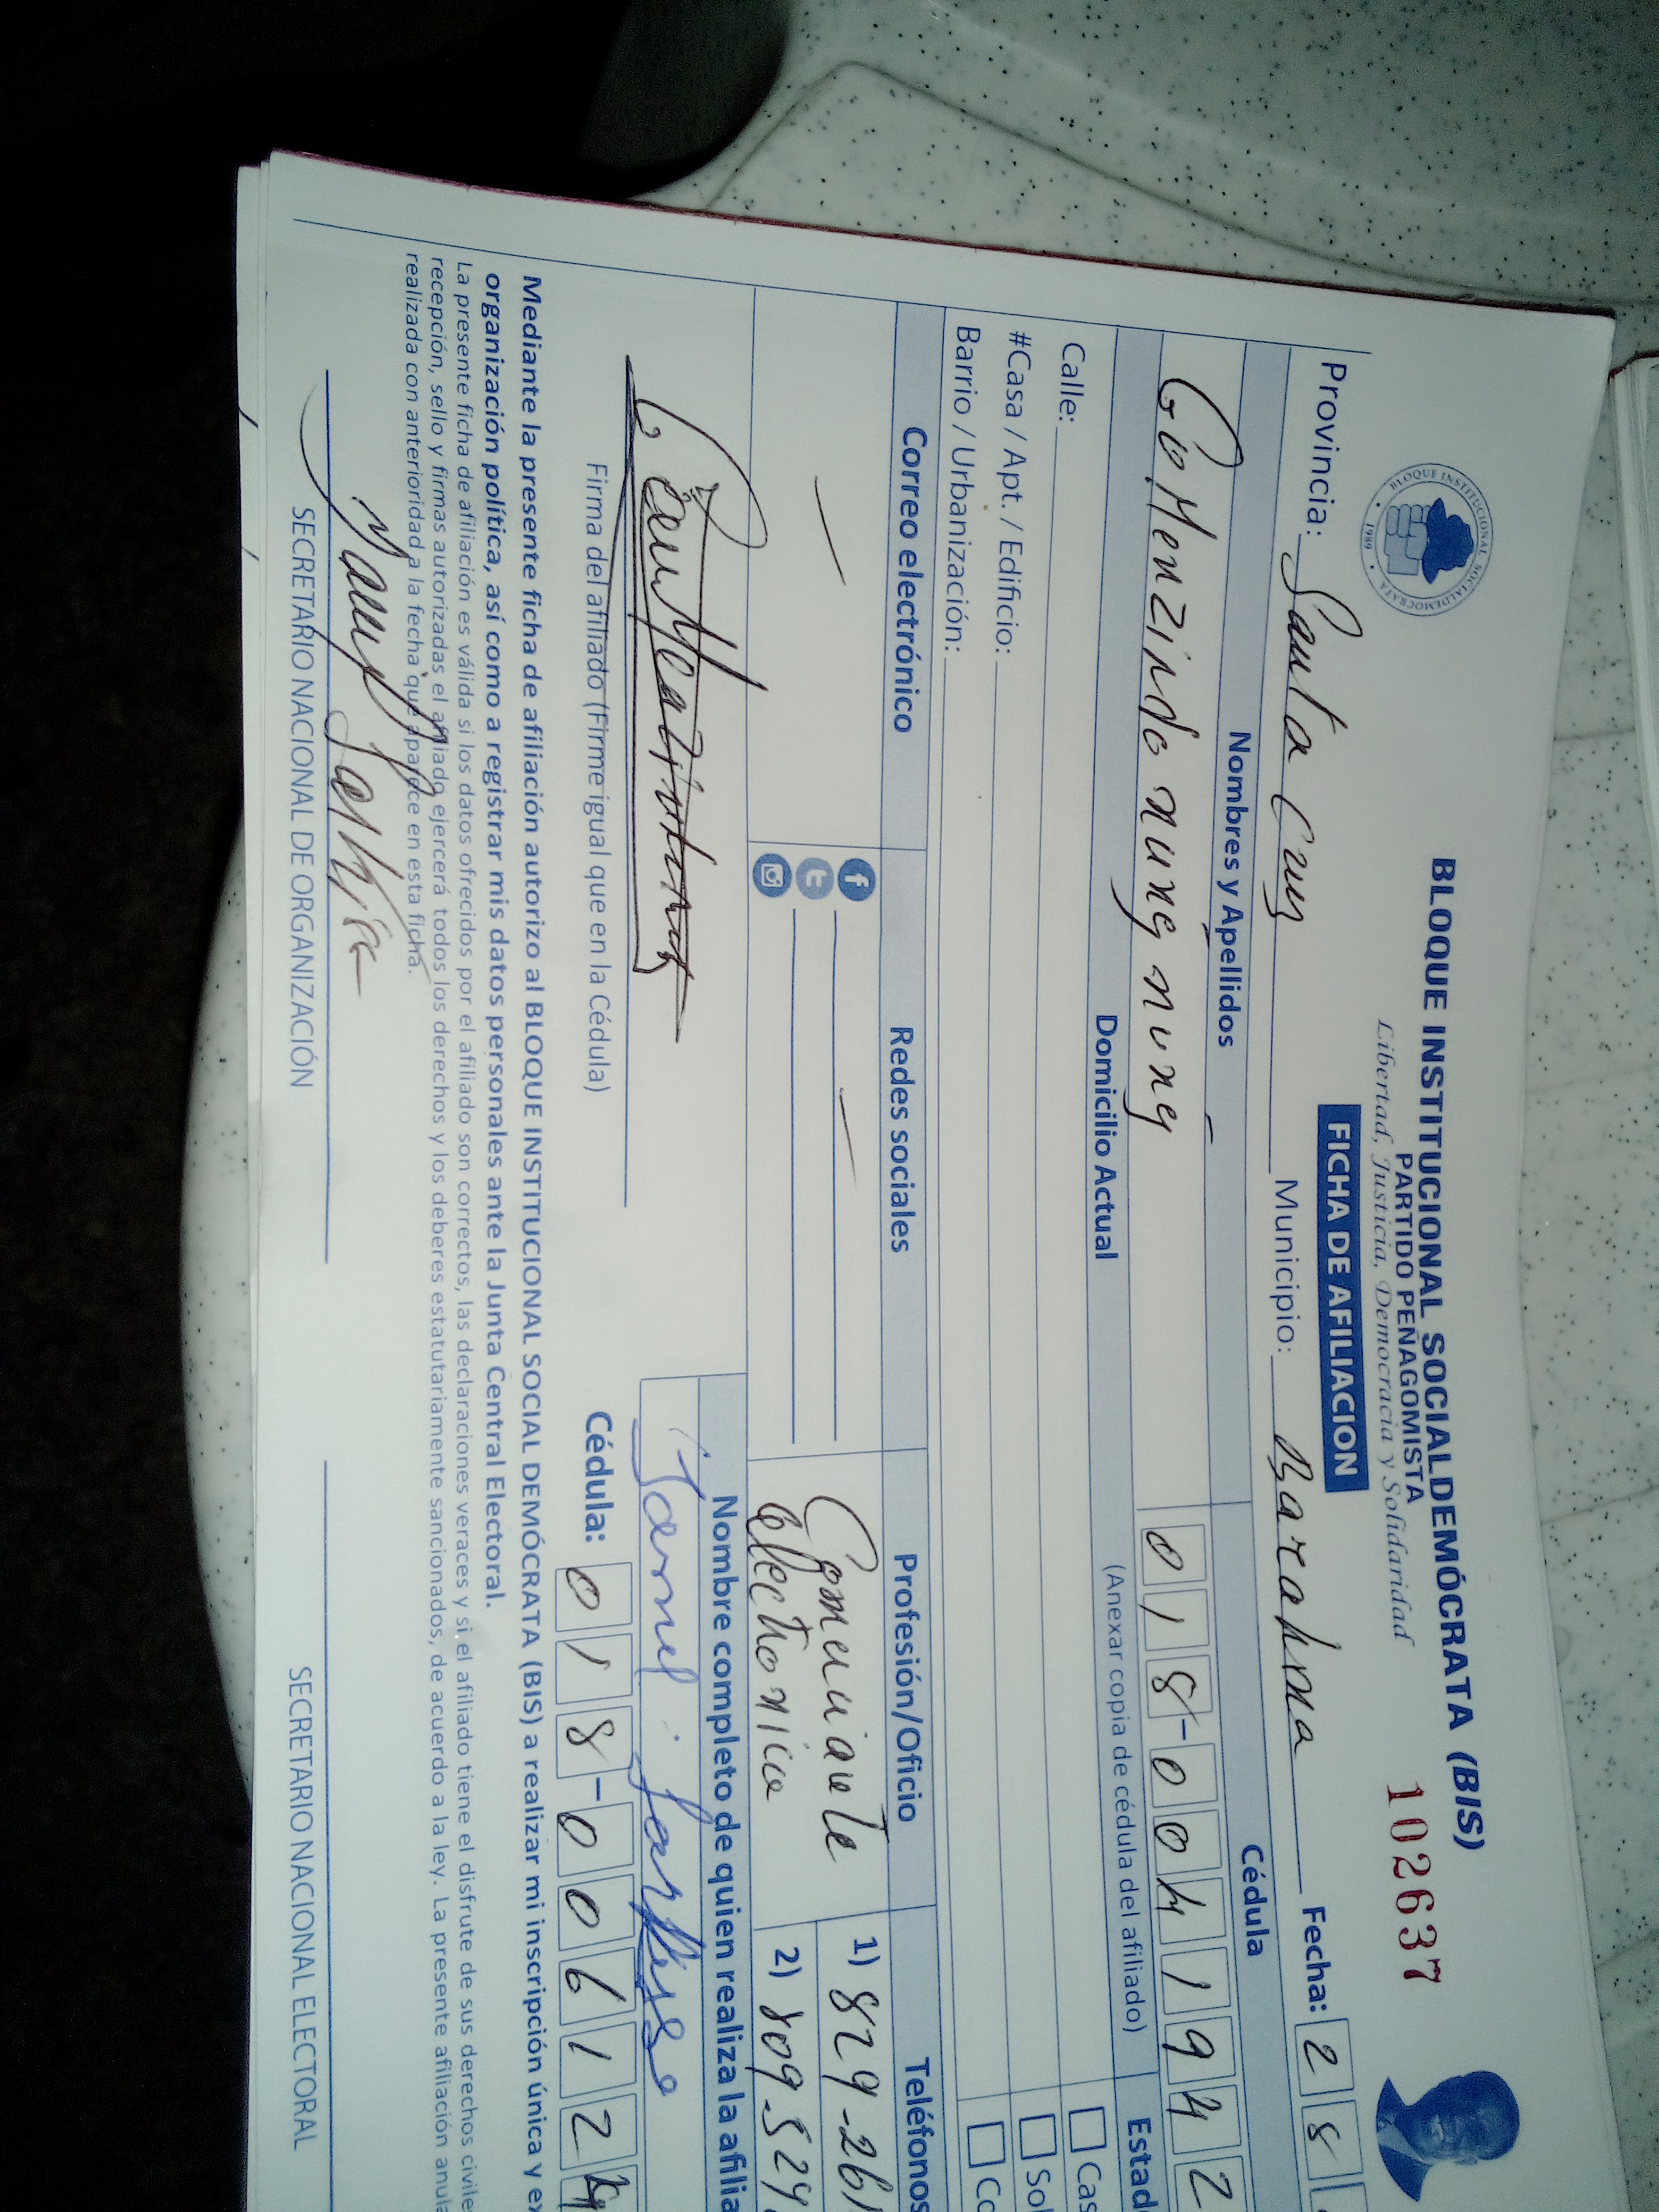 BLOQUE INSTITUCIONAL SOCIALDEMÓCRATA (BIS)
PARTIDO PEÑAGOMISTA
Libertad, Justicia, Democracia y Solidaridad
BLOQUE INSTITUCIONAL SOCIALDEMOCRATA
1989
102637
FICHA DE AFILIACION
Provincia: Santa Cruz Municipio: Barahona Fecha: 28
Nombres y Apellidos Cédula
nuñez nuñez 018-0041942
Domicilio Actual (Anexar copia de cédula del afiliado) Estad
Calle: Cas
#Casa / Apt. / Edificio: Sol
Barrio / Urbanización: Co
Correo electrónico Redes sociales Profesión/Oficio Teléfonos
Comerciante 1) 829-261
Electronico 2) 809-524
Nombre completo de quien realiza la afilia
Firma del afiliado (Firme igual que en la Cédula) Cédula: 018-006124
Mediante la presente ficha de afiliación autorizo al BLOQUE INSTITUCIONAL SOCIAL DEMÓCRATA (BIS) a realizar mi inscripción única y ex
organización política, así como a registrar mis datos personales ante la Junta Central Electoral.
La presente ficha de afiliación es válida si los datos ofrecidos por el afiliado son correctos, las declaraciones veraces y si el afiliado tiene el disfrute de sus derechos civiles
recepción, sello y firmas autorizadas el afiliado ejercerá todos los derechos y los deberes estatutariamente sancionados, de acuerdo a la ley. La presente afiliación anula
realizada con anterioridad a la fecha que aparece en esta ficha.
SECRETARIO NACIONAL DE ORGANIZACIÓN SECRETARIO NACIONAL ELECTORAL